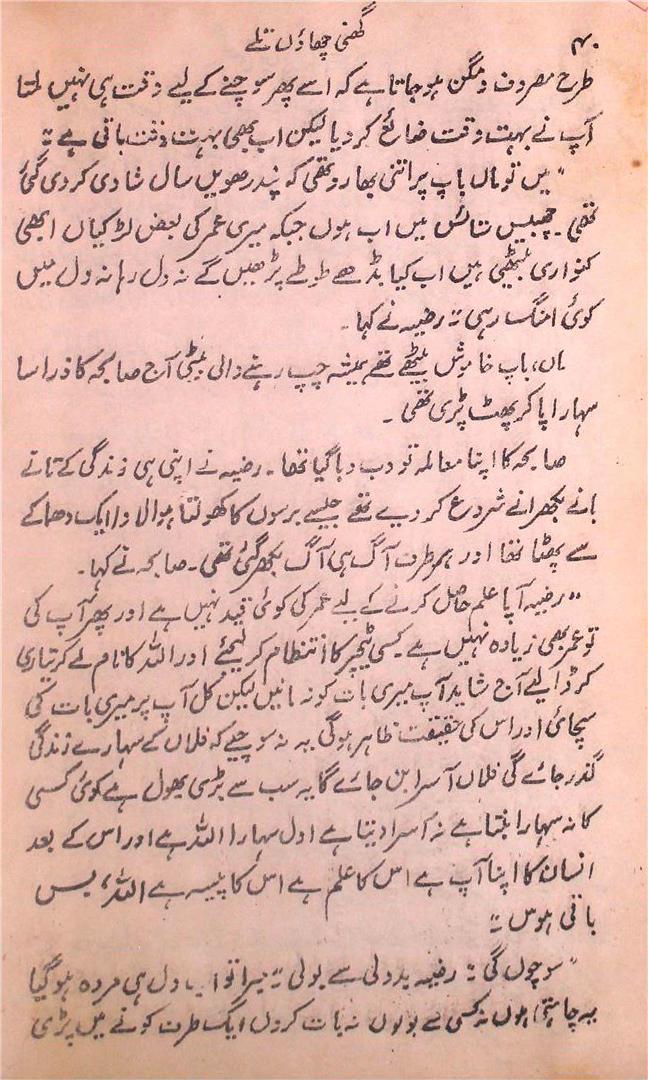 ۴۰
گھنی چھاؤں تلے
طرح مصروف و مگن ہو جاتا ہے کہ اسے پھر سوچنے کے لیے وقت ہی نہیں ملتا
آپ نے بہت وقت ضائع کر دیا لیکن اب بھی بہت وقت باقی ہے ۔"
"میں تو ماں باپ پر اتنی بھارو تھی کہ پندرھویں سال شادی کر دی گئی
تھی ۔ چھبیس ستائس میں اب ہوں جبکہ میری عمر کی بعض لڑکیاں ابھی
کنواری بیٹھی ہیں اب کیا بڈھے طوطے پڑھیں گے نہ دل رہا نہ دل میں
کوئی امنگ رہی ۔" رضیہ نے کہا ۔
ماں، باپ خاموش بیٹھے تھے ہمیشہ چپ رہنے والی بیٹی آج صابحہ کا ذرا سا
سہارا پا کر پھٹ پڑی تھی ۔
صابحہ کا اپنا معاملہ تو دب دبا گیا تھا ۔ رضیہ نے اپنی ہی زندگی کے تانے
بانے بکھرانے شروع کر دیے تھے جیسے برسوں کا کھولتا ہوا لاوا ایک دھماکے
سے پھٹا تھا اور ہر طرف آگ ہی آگ بکھر گئی تھی ۔ صابحہ نے کہا ۔
"رضیہ آپا علم حاصل کرنے کے لیے عمر کی کوئی قید نہیں ہے اور پھر آپ کی
تو عمر بھی زیادہ نہیں ہے ۔ کسی ٹیچر کا انتظام کر لیجئے اور اللہ کا نام لے کر تیاری
کر ڈالیے آج شاید آپ میری بات کو نہ مانیں لیکن کل آپ پر میری بات کی
سچائی اور اس کی حقیقت ظاہر ہوگی یہ نہ سوچیے کہ فلاں کے سہارے زندگی
گذر جائے گی فلاں آسرا بن جائے گا یہ سب سے بڑی بھول ہے کوئی کسی
کا نہ سہارا بنتا ہے نہ آسرا دیتا ہے اول سہارا اللہ ہے اور اس کے بعد
انسان کا اپنا آپ ہے اس کا علم ہے اس کا پیسہ ہے اللہ، بس
باقی ہوس ۔"
"سوچوں گی ۔" رضیہ بددلی سے بولی ۔ "میرا تو اب دل ہی مردہ ہو گیا
یہ چاہتی ہوں نہ کسی سے بولوں نہ بات کروں ایک طرف کونے میں پڑی